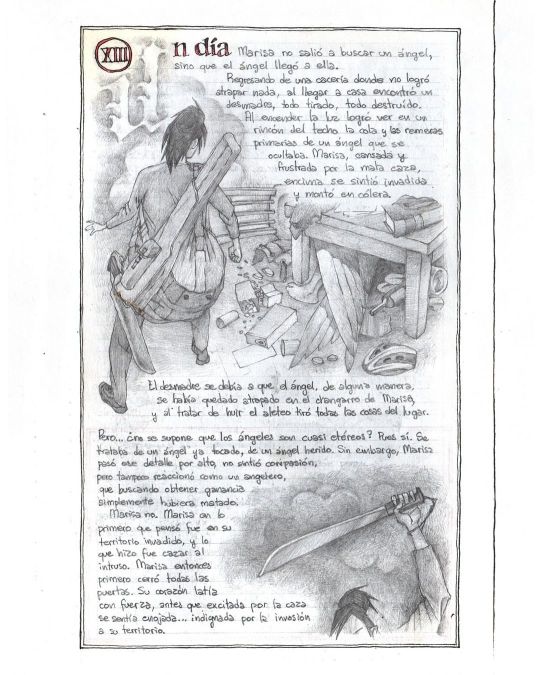 XIII
Un día Marisa no salió a buscar un ángel,
sino que el ángel llegó a ella.
Regresando de una cacería donde no logró
atrapar nada, al llegar a casa encontró un
desmadres, todo tirado, todo destruído.
Al encender la luz logró ver en un
rincón del techo la cola y las remeras
primarias de un ángel que se
ocultaba. Marisa, cansada y
frustrada por la mala caza,
encima se sintió invadida
y montó en cólera.
El desmadre se debía a que el ángel, de alguna manera,
se había quedado atrapado en el changarro de Marisa,
y al tratar de huír el aleteo tiró todas las cosas del lugar.
Pero... ¿no se supone que los ángeles son cuasi etéreos? Pues sí. Se
trataba de un ángel ya tocado, de un ángel herido. Sin embargo, Marisa
pasó ese detalle por alto, no sintió compasión,
pero tampoco reaccionó como un angelero,
que buscando obtener ganancia
simplemente hubiera matado.
Marisa no. Marisa en lo
primero que pensó fue en su
territorio invadido, y lo
que hizo fue cazar al
intruso. Marisa entonces
primero cerró todas las
puertas. Su corazón latía
con fuerza, antes que excitada por la caza
se sentía enojada... indignada por la invasión
a su territorio.